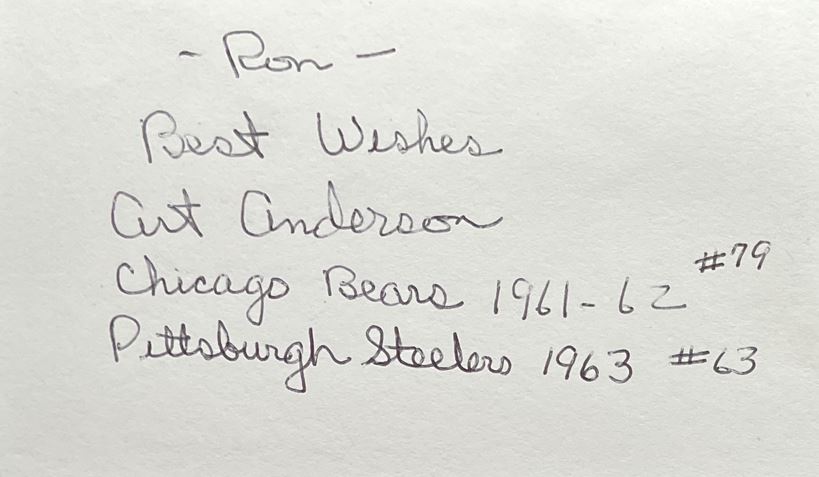 - Ron -
Best Wishes
Art Anderson
Chicago Bears 1961-62 #79
Pittsburgh Steelers 1963 #63